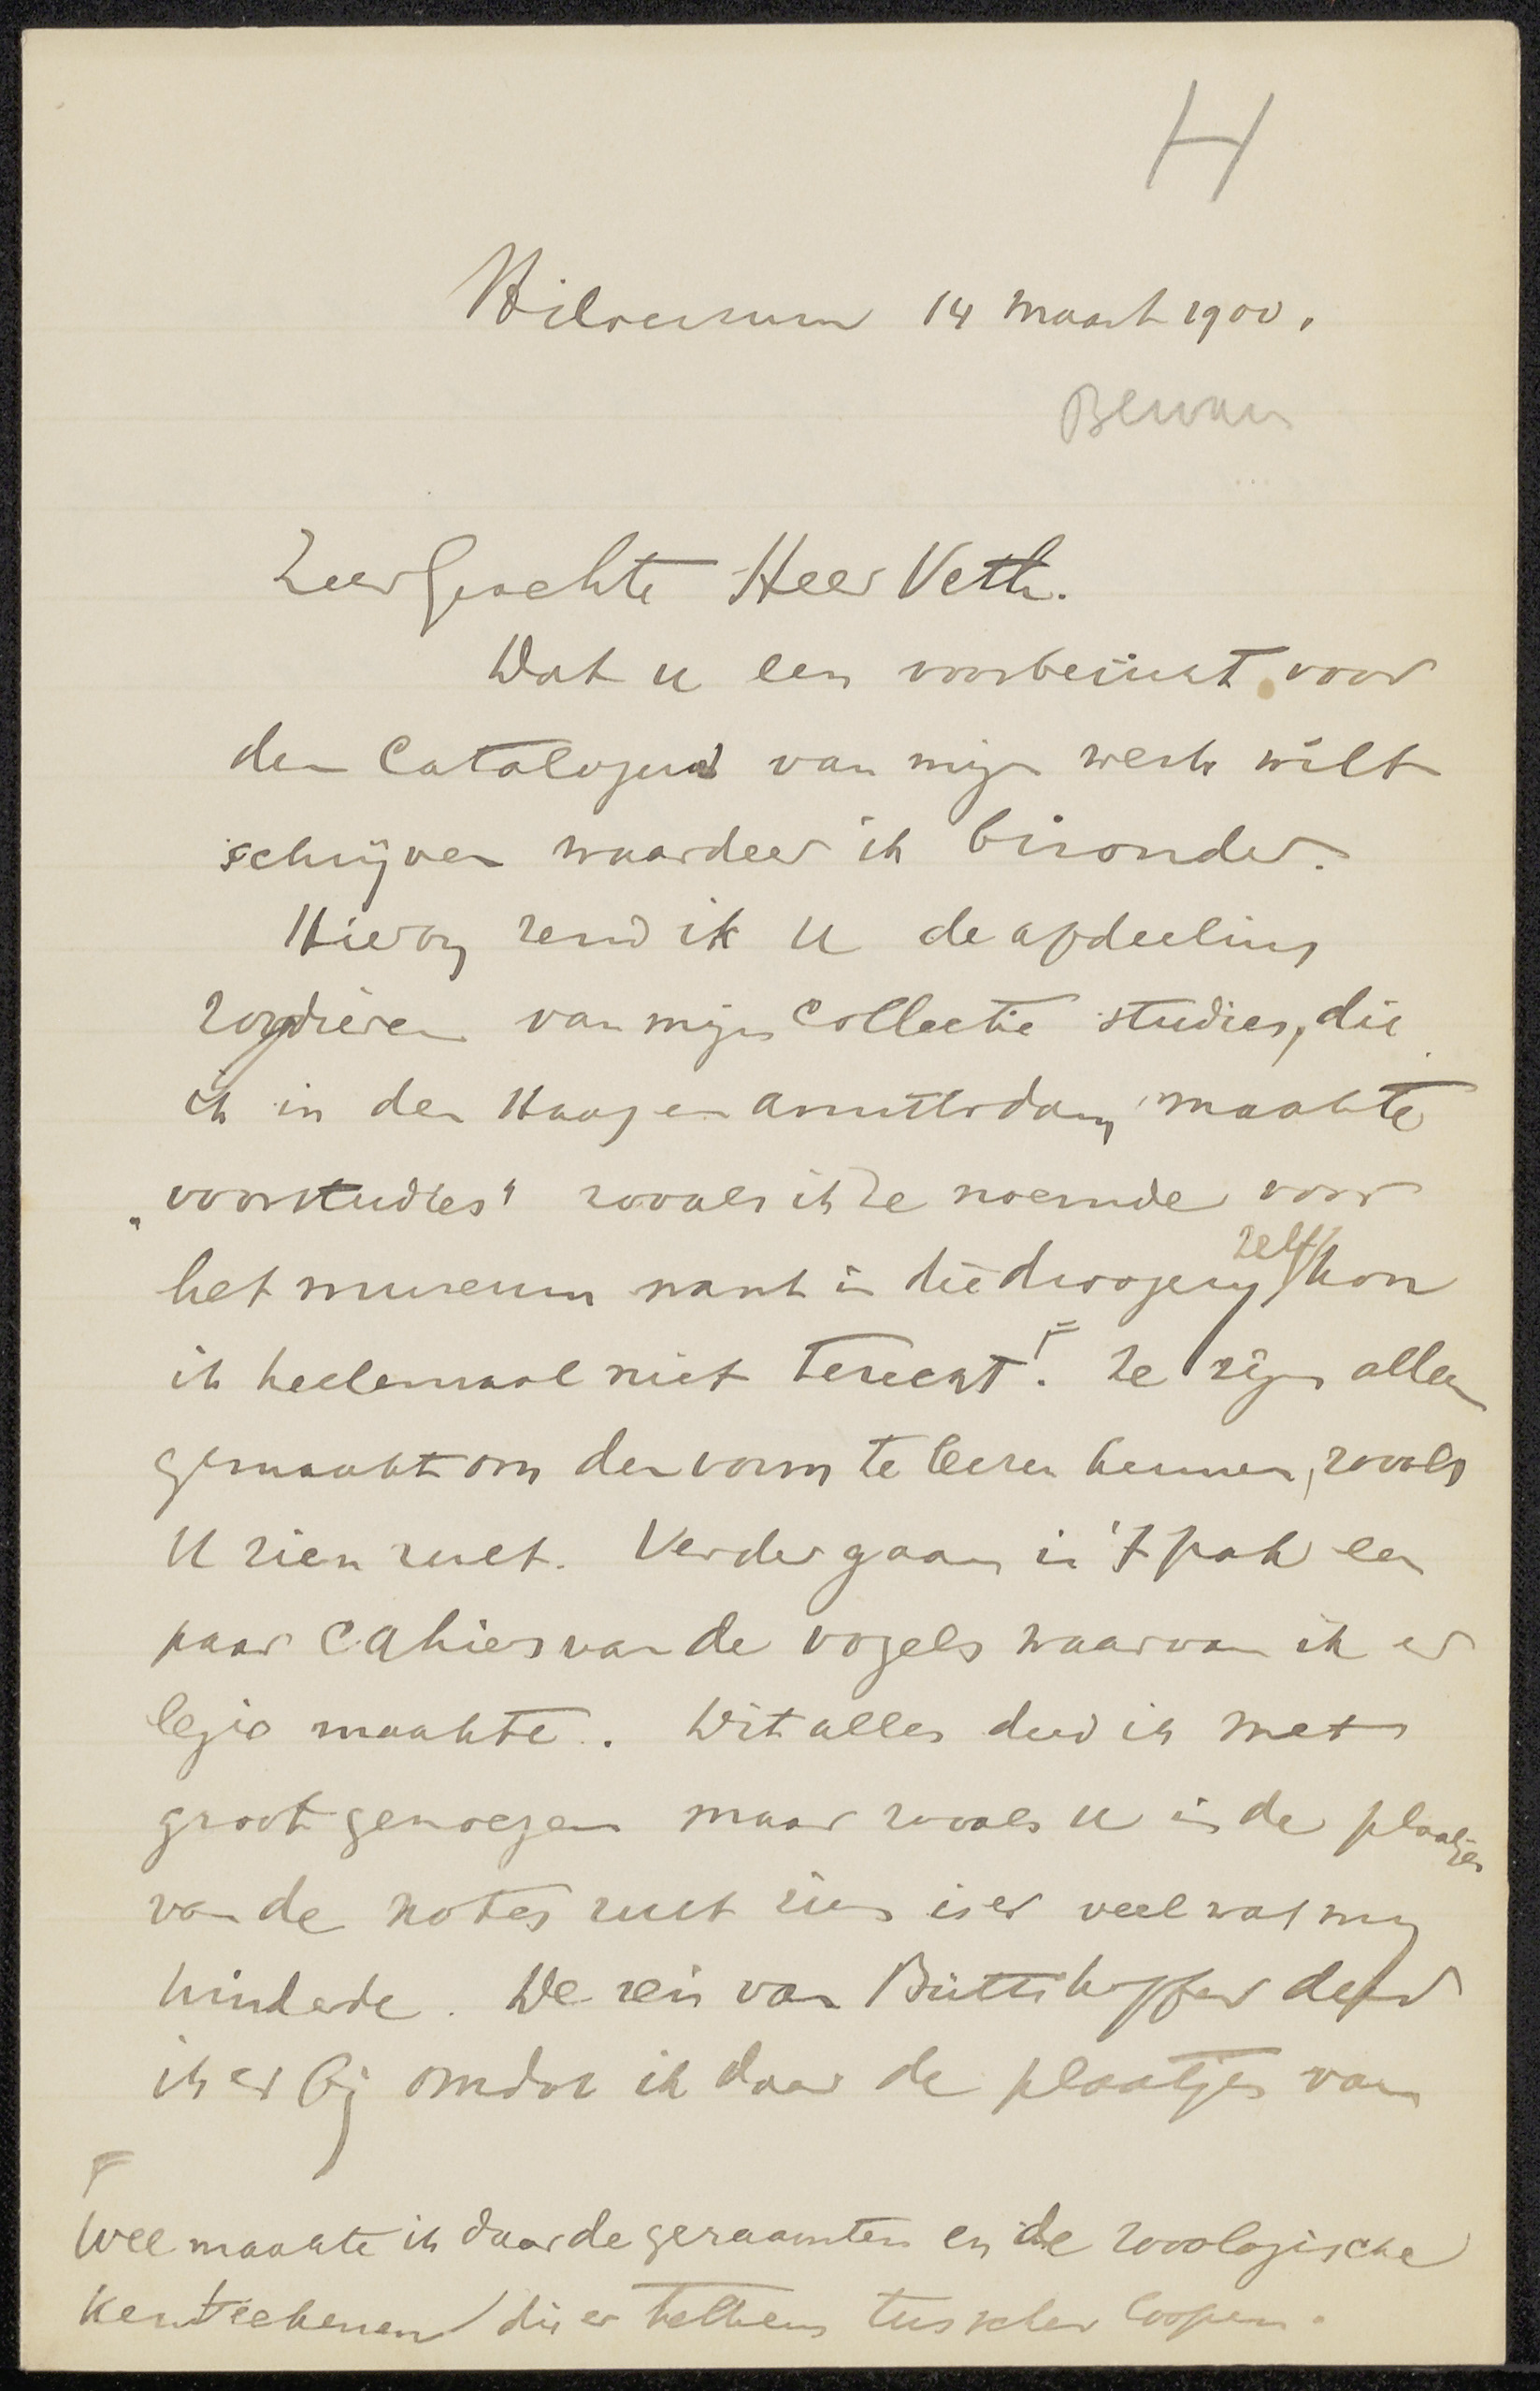 H
Hilversum 14 Maart 1900.
Bewaren
Zeer Geachte Heer Veth.
Dat u een voorbericht voor
den Catalogus van mijn werk wilt
schrijven waardeer ik bizonder.
Hierby zend ik U de afdeeling
zoogdieren van mijn Collectie studies, die
ik in den Haag en Amsterdam maakte
„voorstudies" zooals ik ze noemde voor
het museum want in die droogery zelf kon
ik heelemaal niet terecht! F Ze zijn allen
gemaakt om den vorm te leeren kennen, zooals
U zien zult. Verder gaan in 't pak een
paar Cahiers van de vogels waarvan ik er
legio maakte. Dit alles deed ik met
groot genoegen maar zooals U in de plaatjes
van de notes zult zien is er veel wat my
hinderde. De reis van Büttikoffer deed
ik er bij omdat ik daar de plaatjes van
F
Wel maakte ik daar de geraamten en de zoologische
Kenteekenen die er telkens tusschen loopen.